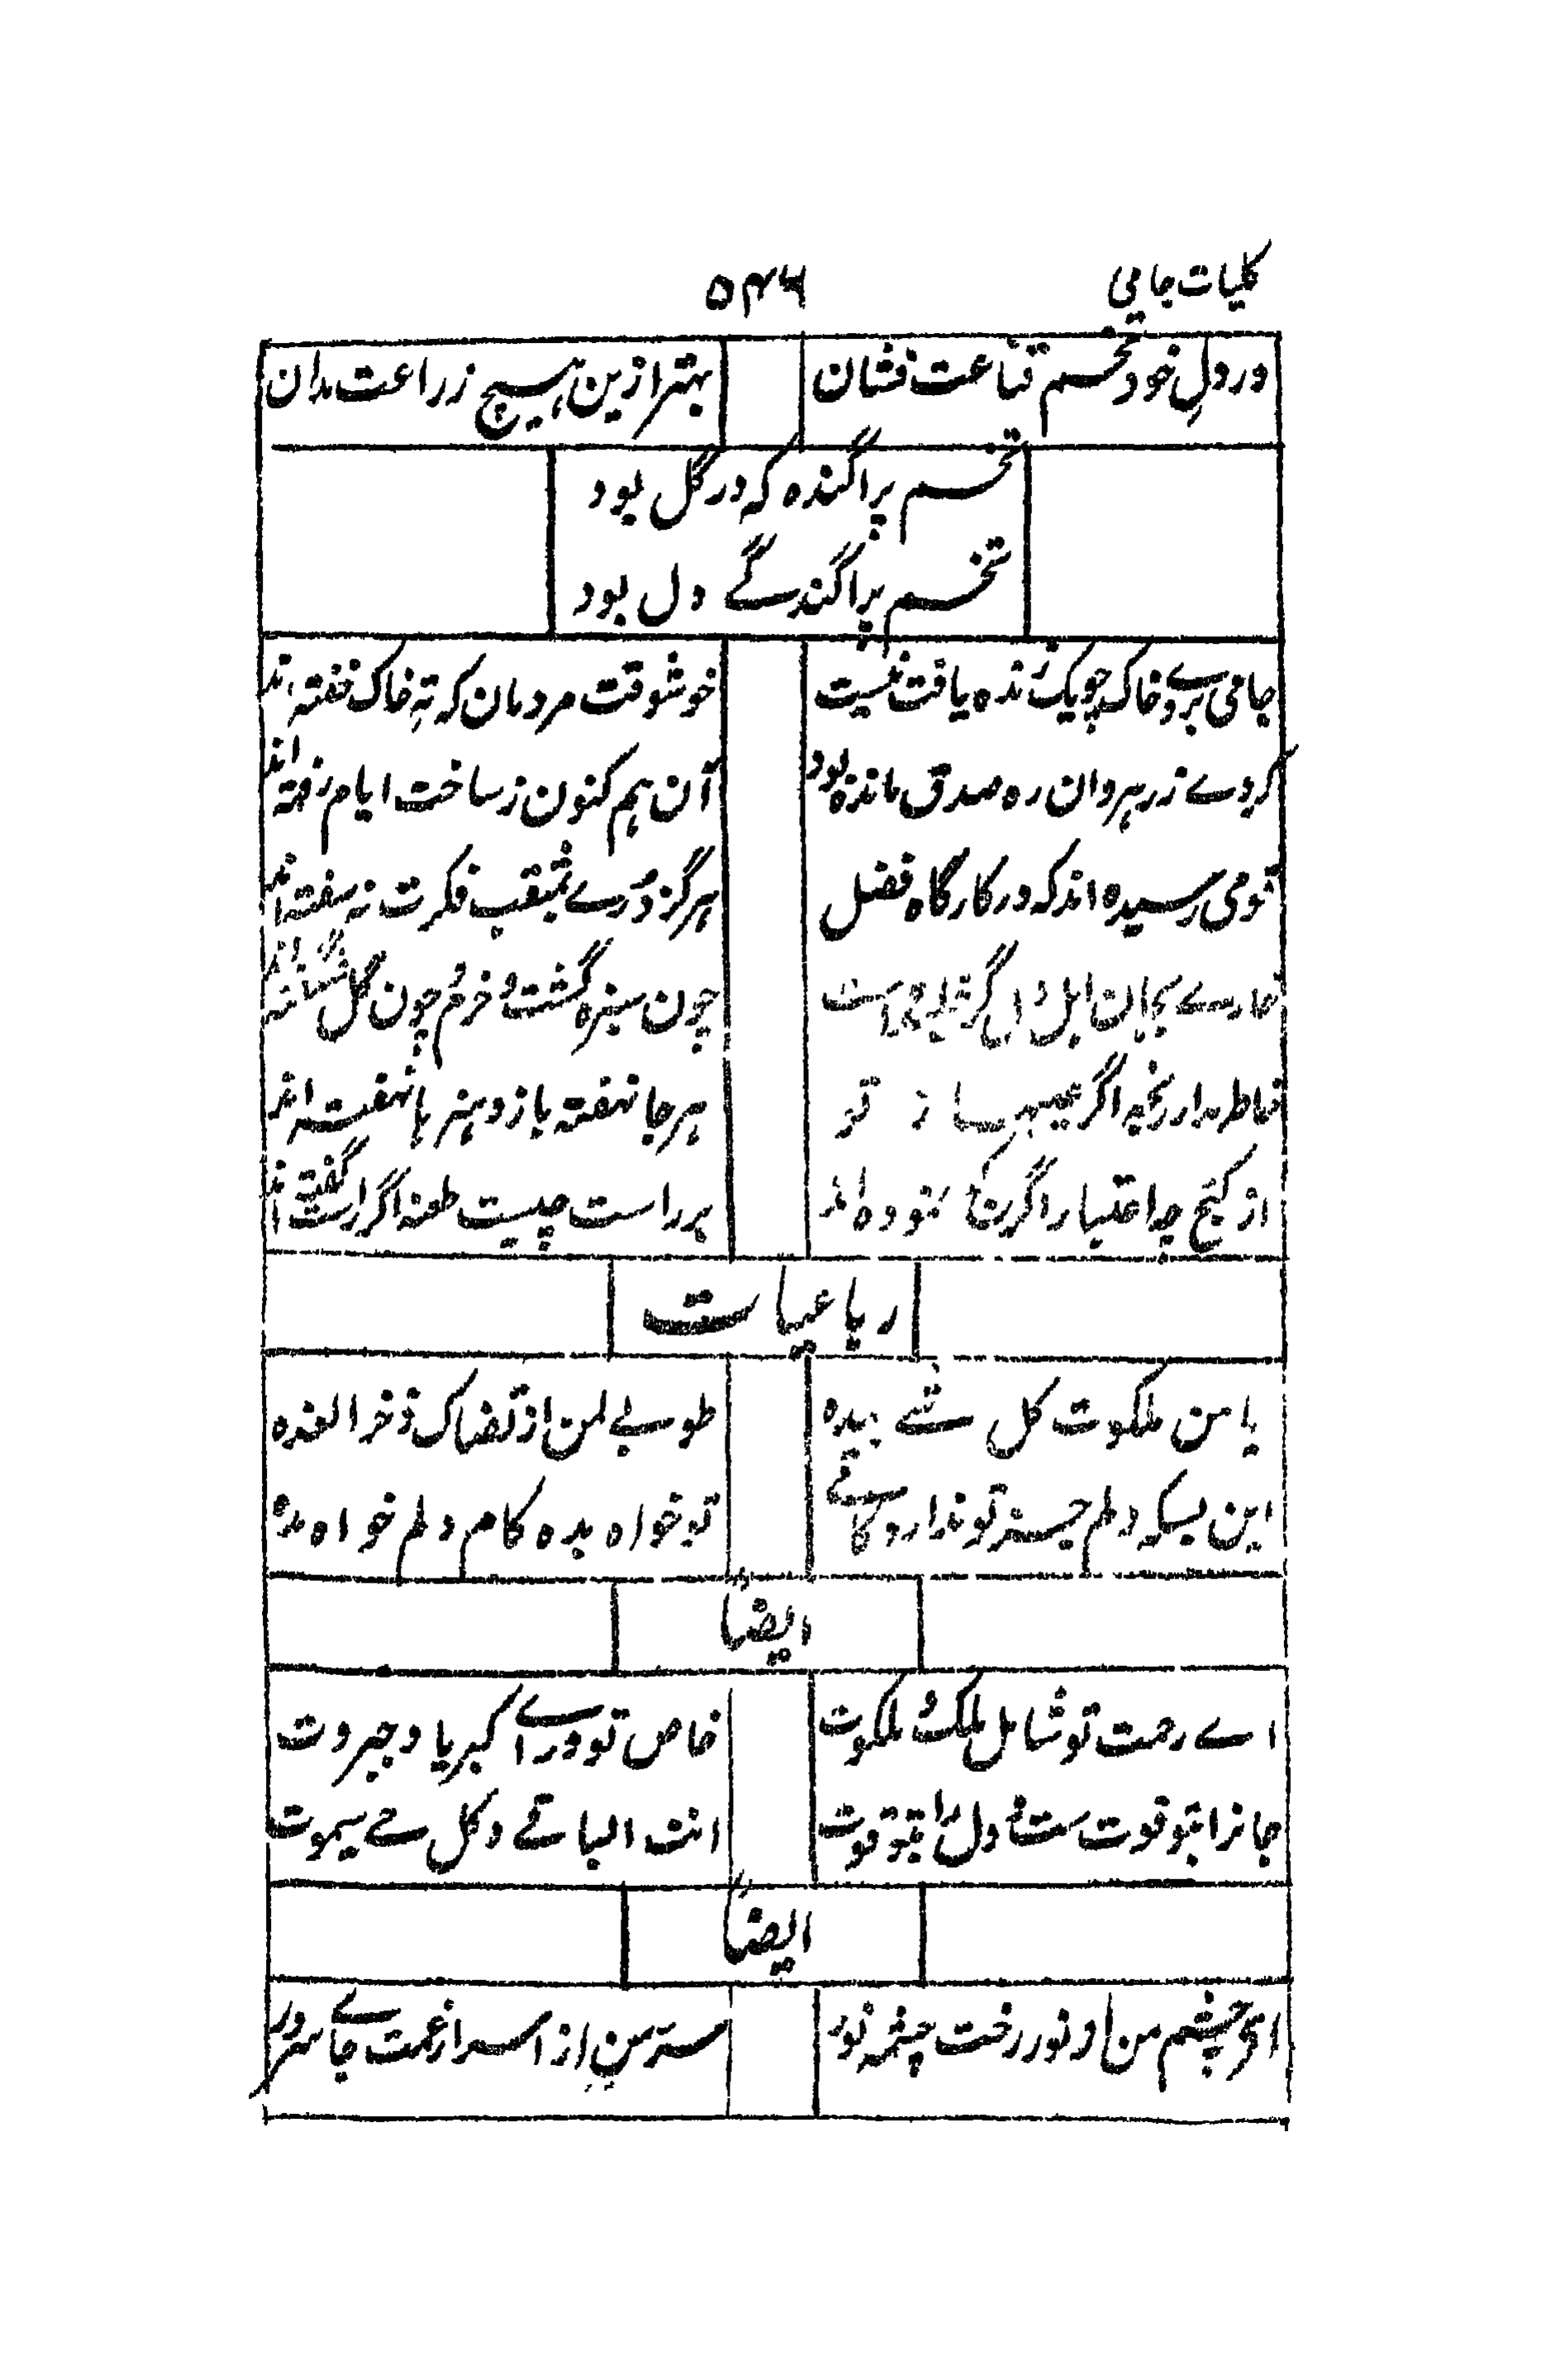 کلیات جامی ۵۴۶
در دلِ خود تخم قناعت فشان بهتر ازین ہیچ زراعت مدان
تخم پراگنده که در گل بود
تخم پراگندگے دل بود
جامی بروے خاک چو یک زنده یافت نیست خوشوقت مردمان که تهِ خاک خفته اند
گردے ز رہروان ره صدق مانده بود آن ہم کنون ز ساخت ایام رفته اند
قومی رسیده اند که در کارگاه فضل ہرگز دُرے بمثقب فکرت نه سفته اند
بجان اہل دل گر چون سبزه گشت و خرم چون گل
خاطر مدار رنجه اگر از تو ہر جا نهفته یا ز دہنر ہا نهفته اند
از کج چه اختیار اگر نموده اند بر راست چیست طعنه اگر راست گفته اند
رباعیات
یا من ملکوت کل شے بیده طوبے لمن ارتضاک ذخرا لغده
این بسکه دلم جز تو ندارد کامے تو خواه بده کام دلم خواه مده
ایضاً
اے رحمت تو شامل ملک و ملکوت خاص تو ورداے کبریا و جبروت
جانرا بتو قوت ست و دل را بتو قوت انت الباقے وکل حے یموت
ایضاً
چشم من از نور رخت چشمه نور سرّ من از اسرار غمت جاے سرور